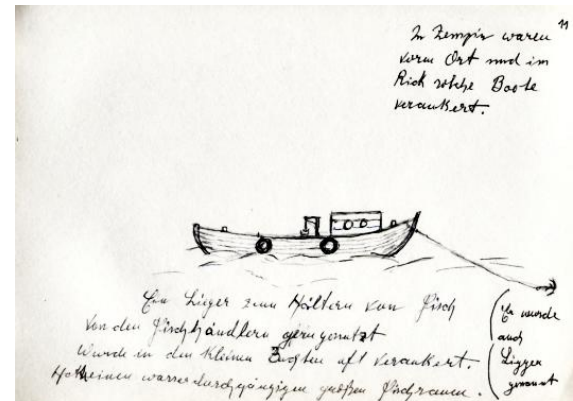 11
In Zempin waren
vorm Ort und im
Rick solche Boote
verankert.
Ein Lieger zum Hältern von Fisch
Von den Fischhändlern gern genutzt
Wurde in den kleinen Buchten oft verankert.
Hat einen wasserdurchgängigen großen Fischraum.
(Er wurde
auch
Ligger
genannt